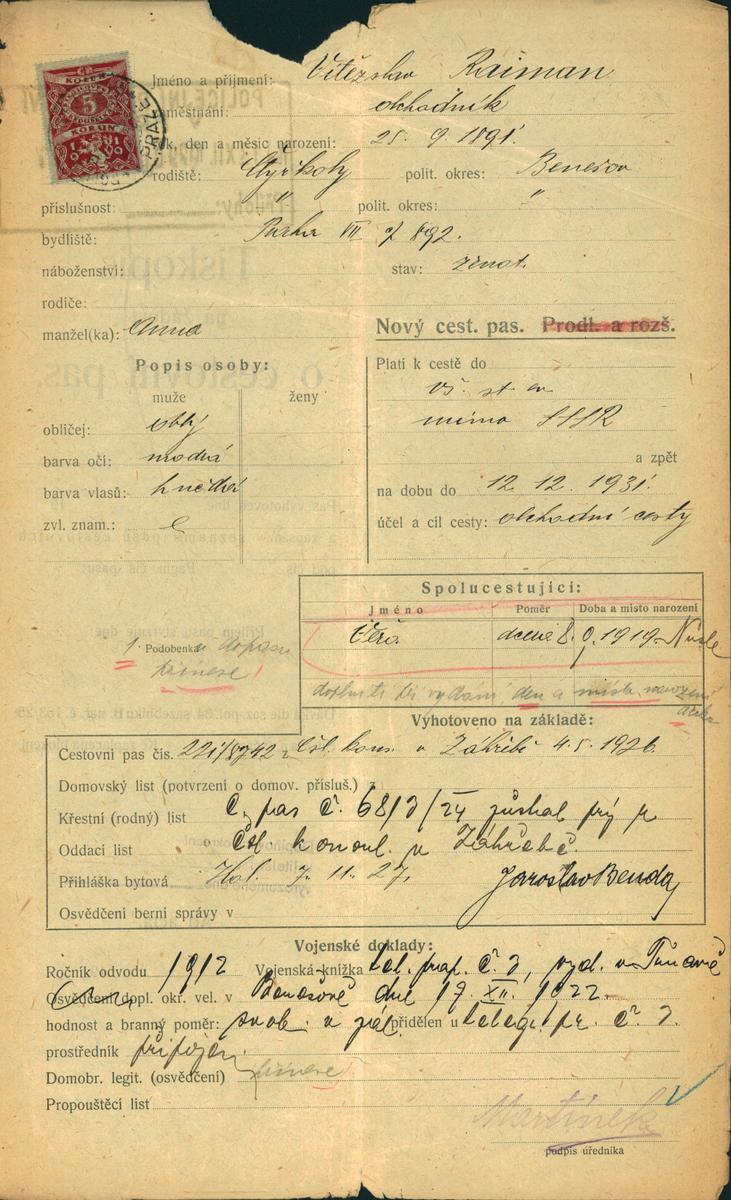 KOLEK
5
KORUN
1919
PRAZE
Jméno a příjmení: Vítězslav Raiman
městnání: obchodník
k, den a měsíc narození: 25. 9. 1891.
rodiště: Čtyřkoly polit. okres: Benešov
příslušnost: " polit. okres: "
bydliště: Praha VII čp 892.
náboženství: stav: ženat.
rodiče:
manžel(ka): Anna
Nový cest. pas. Prodl. a rozš.
Popis osoby:
muže ženy
obličej: oblý
barva očí: modrá
barva vlasů: hnědá
zvl. znam.:
Platí k cestě do
vš. st. ev.
mimo SSSR
a zpět
na dobu do 12. 12. 1931.
účel a cíl cesty: obchodní cesty
Spolucestující:
Jméno Poměr Doba a místo narození
Věra dcera 8. 9. 1919 Nusle
1. Podobenka a dopasu
přinese!
doplniti při vydání den a místo narození
dítka
Vyhotoveno na základě:
Cestovní pas čís. Čsl. kons. v Záhřebě 4. 5. 1926.
Domovský list (potvrzení o domov. přísluš.) z
Křestní (rodný) list C. pas č. 68/J/24 zůstal prý
Oddací list čsl. konsul. v Záhřebě.
Přihláška bytová Hol. 7. 11. 27. Jaroslav Benda
Osvědčení berní správy v
Vojenské doklady:
Ročník odvodu 1912 Vojenská knižka tel. prap. č. 3, vyd. v Trnavě
Osvědčení dopl. okr. vel. v Benešově dne 19. XII. 1922.
hodnost a branný poměr: svob. v zál. přidělen u telegr. pr. č. 3.
prostředník připojen.
Domobr. legit. (osvědčení) přinese
Propouštěcí list
Martínek
podpis úředníka